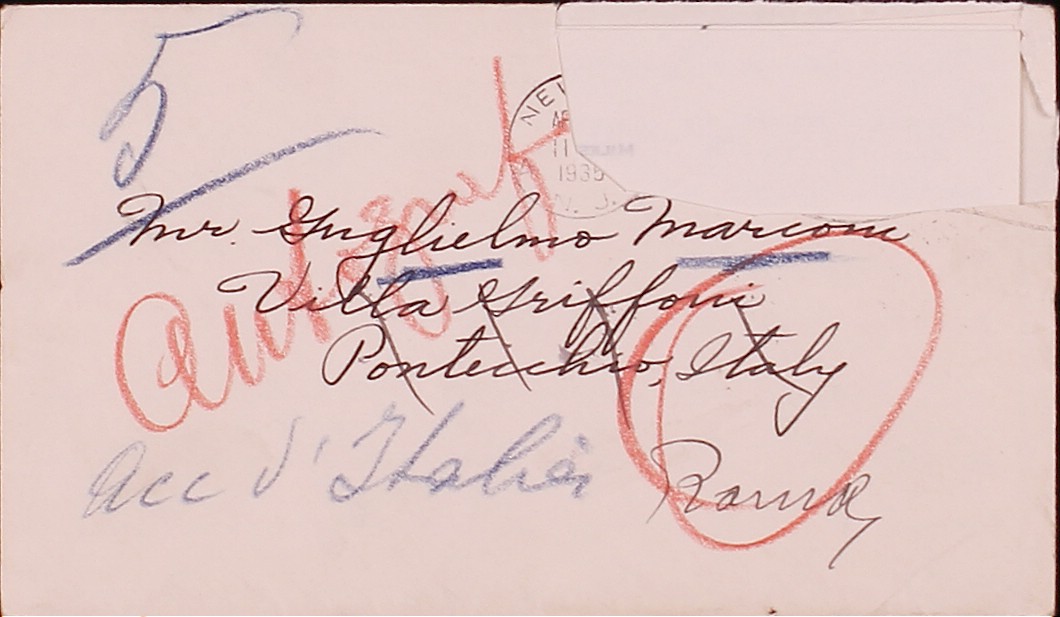 5
NE
11
1935
N. J.
Mr. Guglielmo Marconi
Villa Griffoni
Pontecchio, Italy
Acc d'Italia
Roma